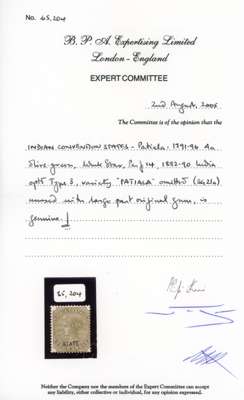 No. 65,204
B. P. A. Expertising Limited
London - England
EXPERT COMMITTEE
2nd August, 2006
The Committee is of the opinion that the
INDIAN CONVENTION STATES - Patiala - 1891-96 4a
Olive-green, Wmk Star, Perf 14, 1882-90 India
optd Type 3, variety "PATIALA" omitted (SG 21a)
unused with large part original gum, is
genuine.
65,204
STATE
Neither the Company nor the members of the Expert Committee can accept
any liability, either collective or individual, for any opinion expressed.